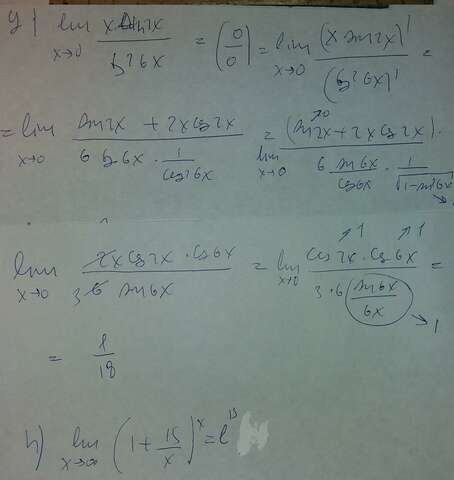 g) lim x→0 x sin2x / tg²6x = (0/0) = lim x→0 (x sin2x)' / (tg²6x)' =
= lim x→0 sin2x + 2x cos2x / 6 tg6x · 1/cos²6x = lim x→0 (sin2x + 2x cos2x) · / 6 sin6x/cos6x · 1/√1-sin²6x
lim x→0 2x cos2x · cos6x / 3 6 sin6x = lim x→0 cos2x · cos6x / 3·6 (sin6x / 6x) → 1 =
= 1/18
h) lim x→∞ (1 + 15/x)^x = e^15